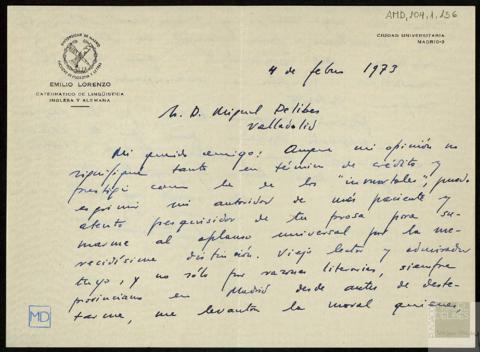 AMD, 104, 1, 156
UNIVERSIDAD DE MADRID
FACULTAD DE FILOSOFIA Y LETRAS
CIUDAD UNIVERSITARIA
MADRID-3
EMILIO LORENZO
CATEDRATICO DE LINGÜISTICA
INGLESA Y ALEMANA
4 de febrero 1973
D. Miguel Delibes
Valladolid
Mi querido amigo: Aunque mi opinión no
signifique tanto en términos de crédito y
prestigio como la de los "inmortales", puedo
esgrimir mi autoridad de más paciente y
atento pesquisidor de tu prosa para su-
marme al aplauso universal por la me-
recidísima distinción. Viejo lector y admirador
tuyo, y no sólo por razones literarias, siempre
provinciano en Madrid desde antes de deste-
tarme, me levantan la moral quienes,
MD